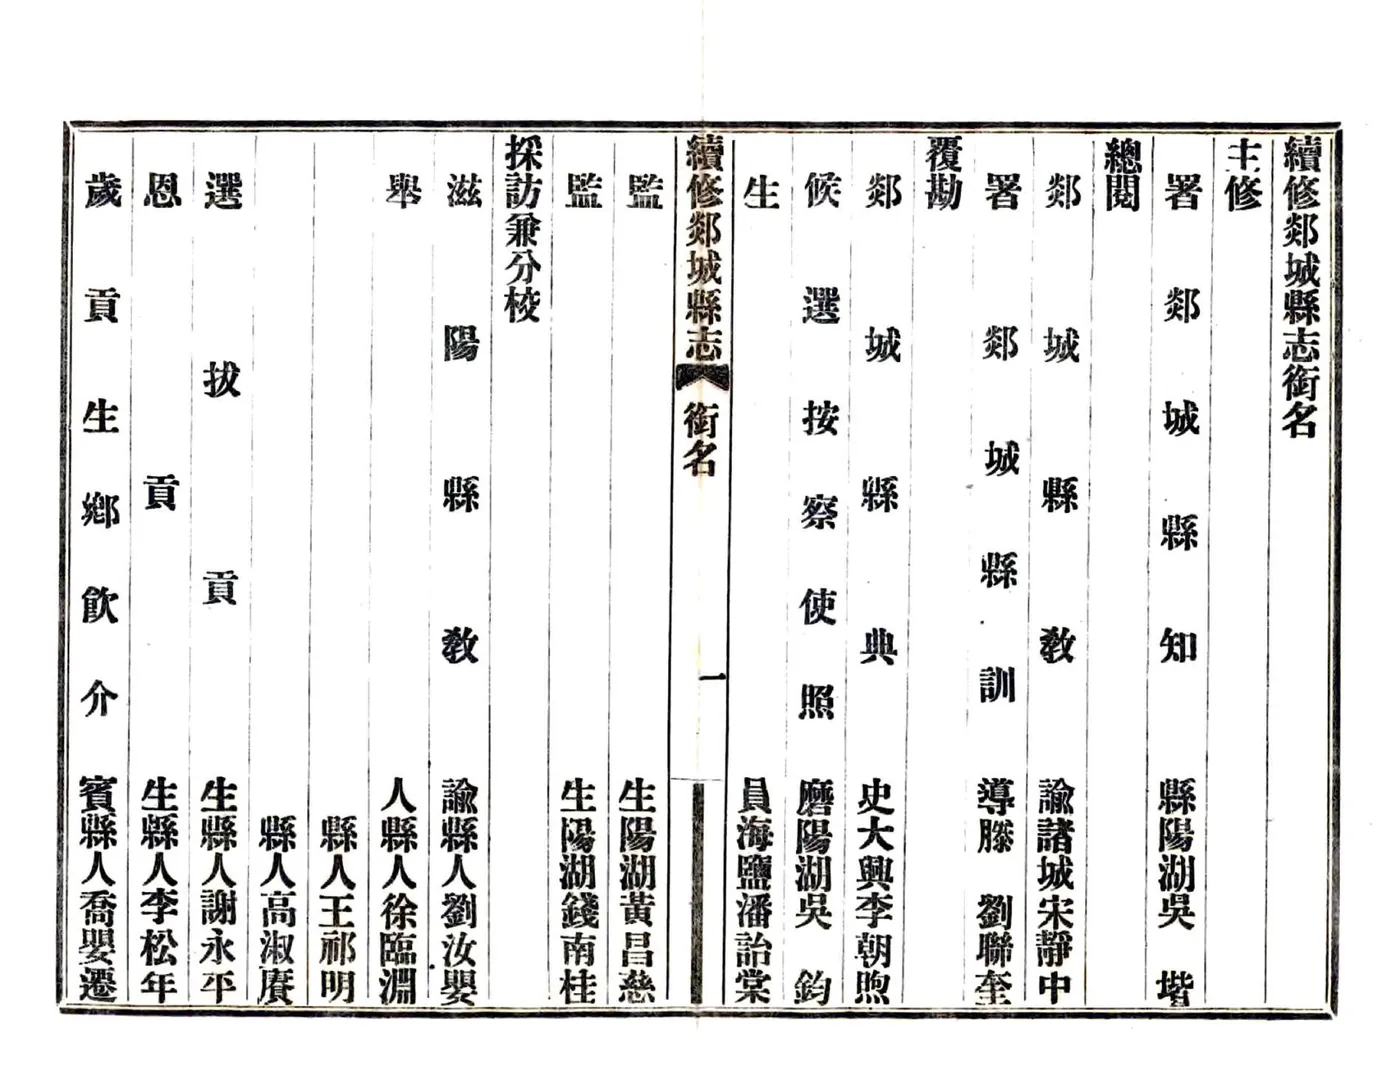 續修郯城縣志銜名
主修
署郯城縣知縣陽湖吳堦
總閱
郯城縣敎諭諸城宋靜中
署郯城縣訓導滕劉聯奎
覆勘
郯城縣典史大興李朝煦
候選按察使照磨陽湖吳鈞
生員海鹽潘詒棠
續修郯城縣志 銜名 一
監生陽湖黃昌慈
監生陽湖錢南桂
採訪兼分校
滋陽縣敎諭縣人劉汝嬰
舉人縣人徐臨淵
縣人王祁明
縣人高淑賡
選拔貢生縣人謝永平
恩貢生縣人李松年
歲貢生鄉飮介賓縣人喬嬰遷